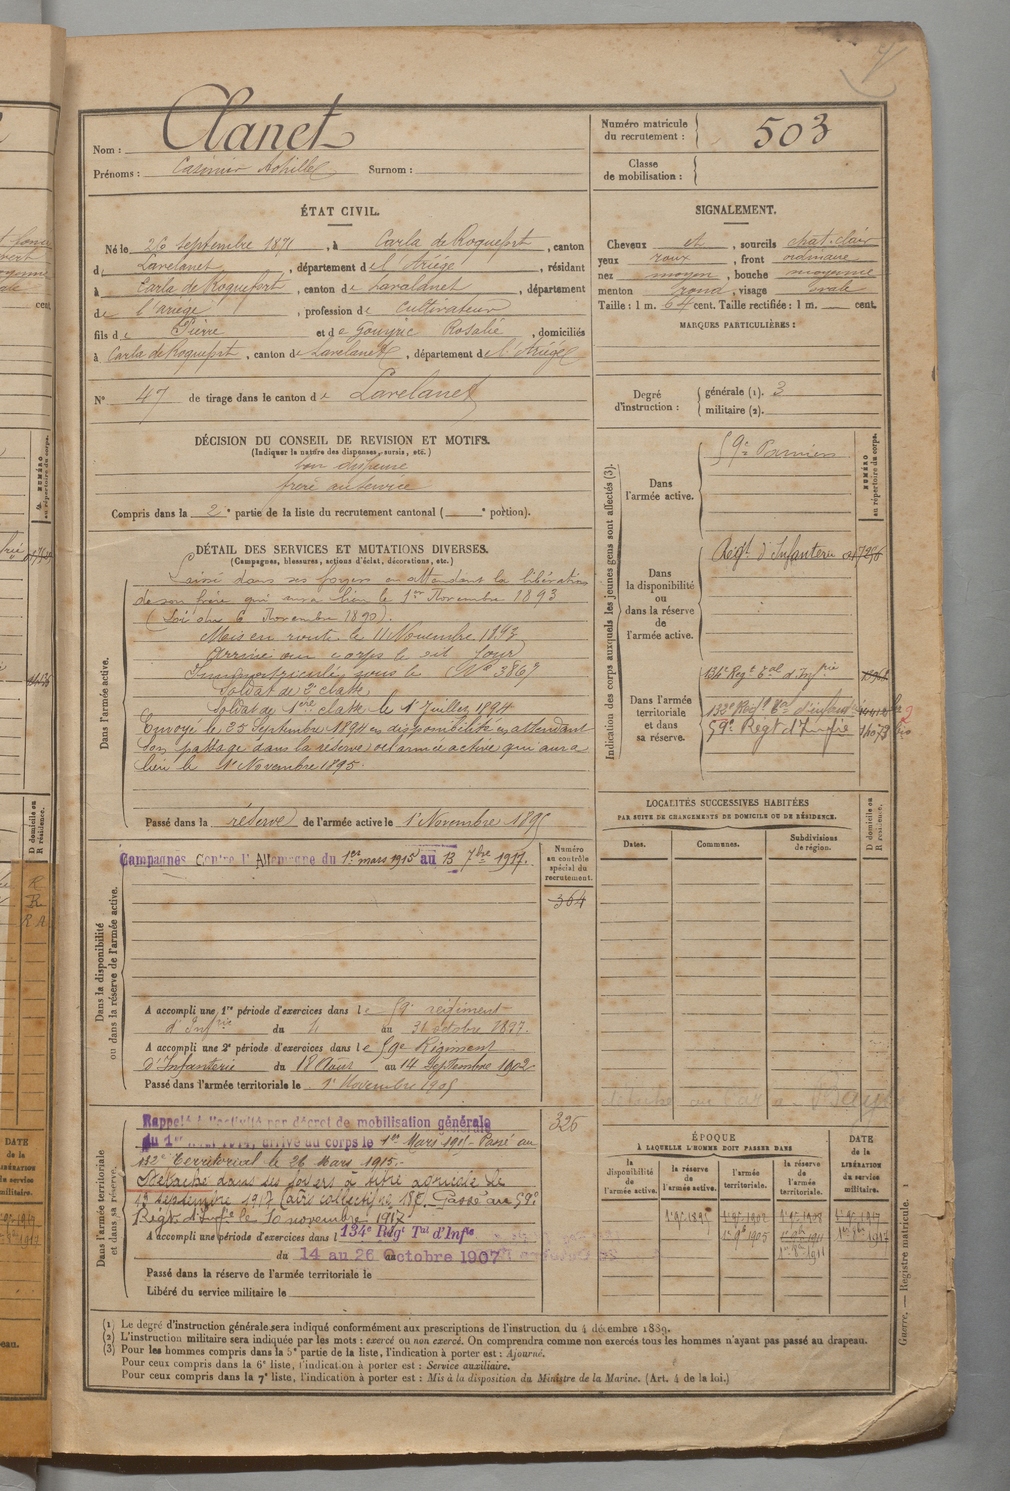 Nom : Clanet
Prénoms : Casimir Achille Surnom :
Numéro matricule
du recrutement : 503
Classe
de mobilisation :
ÉTAT CIVIL.
Né le 26 septembre 1871, à Carla de Roquefort, canton
de Lavelanet, département de l'Ariége, résidant
à Carla de Roquefort, canton de Lavalanet, département
de l'ariége, profession de cultivateur
fils de Pierre et de Gouyric Rosalie, domiciliés
à Carla de Roquefort, canton de Lavelanet, département de l'Ariége
N° 47 de tirage dans le canton de Lavelanet
SIGNALEMENT.
Cheveux et, sourcils chat. clair
yeux roux, front ordinaire
nez moyen, bouche moyenne
menton rond, visage ovale
Taille : 1 m. 64 cent. Taille rectifiée : 1 m. cent.
MARQUES PARTICULIÈRES :
Degré
d'instruction :
générale (1). 3
militaire (2).
DÉCISION DU CONSEIL DE REVISION ET MOTIFS.
(Indiquer la nature des dispenses, sursis, etc.)
bon dispensé
frère au service
Compris dans la 2e partie de la liste du recrutement cantonal ( e portion).
DÉTAIL DES SERVICES ET MUTATIONS DIVERSES.
(Campagnes, blessures, actions d'éclat, décorations, etc.)
Dans l'armée active.
Laissé dans ses foyers en attendant la libération
de son frère qui aura lieu le 1er Novembre 1893
(Loi du 6 Novembre 1890).
Mis en route le 11 Novembre 1893
Arrivé au corps le dit jour
Immatriculé sous le N° 3867
Soldat de 2e classe
Soldat de 1ère classe le 1er Juillet 1894
Envoyé le 25 Septembre 1894 en disponibilité en attendant
son passage dans la réserve de l'armée active qui aura
lieu le 1er Novembre 1895.
Passé dans la réserve de l'armée active le 1er Novembre 1895
Indication des corps auxquels les jeunes gens sont affectés (3).
NUMÉRO
au répertoire du corps.
Dans
l'armée active.
59e Pamiers
Dans
la disponibilité
ou
dans la réserve
de
l'armée active.
Régt. d'Infanterie
Dans l'armée
territoriale
et dans
sa réserve.
134e Regt Tal d'Infrie
132e Regt Tal d'infant
59e Régt d'Infie
LOCALITÉS SUCCESSIVES HABITÉES
PAR SUITE DE CHANGEMENTS DE DOMICILE OU DE RÉSIDENCE.
Dates.
Communes.
Subdivisions
de région.
D domicile ou
R résidence.
Dans la disponibilité
ou dans la réserve de l'armée active.
Campagnes Contre l'Allemagne du 1er mars 1915 au 13 7bre 1917.
Numéro
au contrôle
spécial du
recrutement.
364
A accompli une 1re période d'exercices dans le 59e régiment
d'Infrie du 4 au 31 octobre 1897.
A accompli une 2e période d'exercices dans le 59e Régiment
d'Infanterie du 18 Août au 14 Septembre 1902
Passé dans l'armée territoriale le 1er Novembre 1905
Dans l'armée territoriale
et dans sa réserve.
Rappelé à l'activité par décret de mobilisation générale
du 1er arrivé au corps le 1er Mars 1915 - Passé au
132e Territorial le 26 Mars 1915.-
Détaché dans ses foyers à titre agricole le
13 septembre 1917 (avis collectif n° 18). Passé au 59e
Régt d'Infie le 10 novembre 1917
326
A accompli une période d'exercices dans l 134e Régt Tal d'Infie
du 14 au 26 Octobre 1907
Passé dans la réserve de l'armée territoriale le
Libéré du service militaire le
ÉPOQUE
À LAQUELLE L'HOMME DOIT PASSER DANS
la
disponibilité
de
l'armée active.
la réserve
de
l'armée active.
l'armée
territoriale.
la réserve
de
l'armée
territoriale.
DATE
de la
LIBÉRATION
du service
militaire.
1er 9bre 1895
(1) Le degré d'instruction générale sera indiqué conformément aux prescriptions de l'instruction du 4 décembre 1889.
(2) L'instruction militaire sera indiquée par les mots : exercé ou non exercé. On comprendra comme non exercés tous les hommes n'ayant pas passé au drapeau.
(3) Pour les hommes compris dans la 5e partie de la liste, l'indication à porter est : Ajourné.
Pour ceux compris dans la 6e liste, l'indication à porter est : Service auxiliaire.
Pour ceux compris dans la 7e liste, l'indication à porter est : Mis à la disposition du Ministre de la Marine. (Art. 4 de la loi.)
Guerre. — Registre matricule. 1